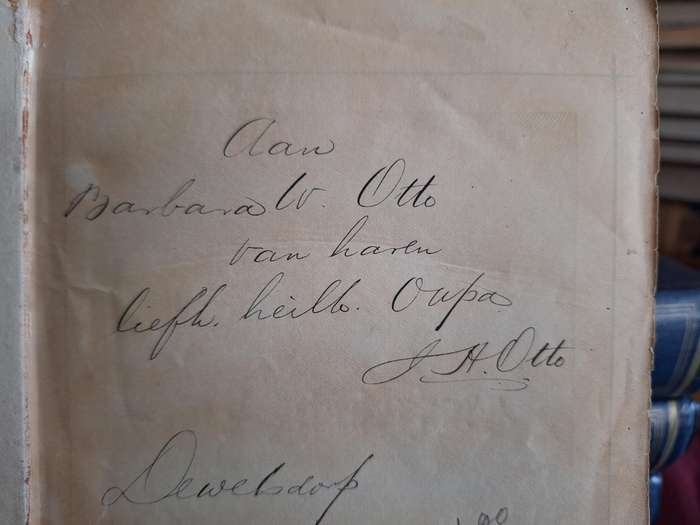 Aan
Barbara W. Otto
van haren
liefh. heilb. Oupa
J. H. Otto
Dewetsdorp